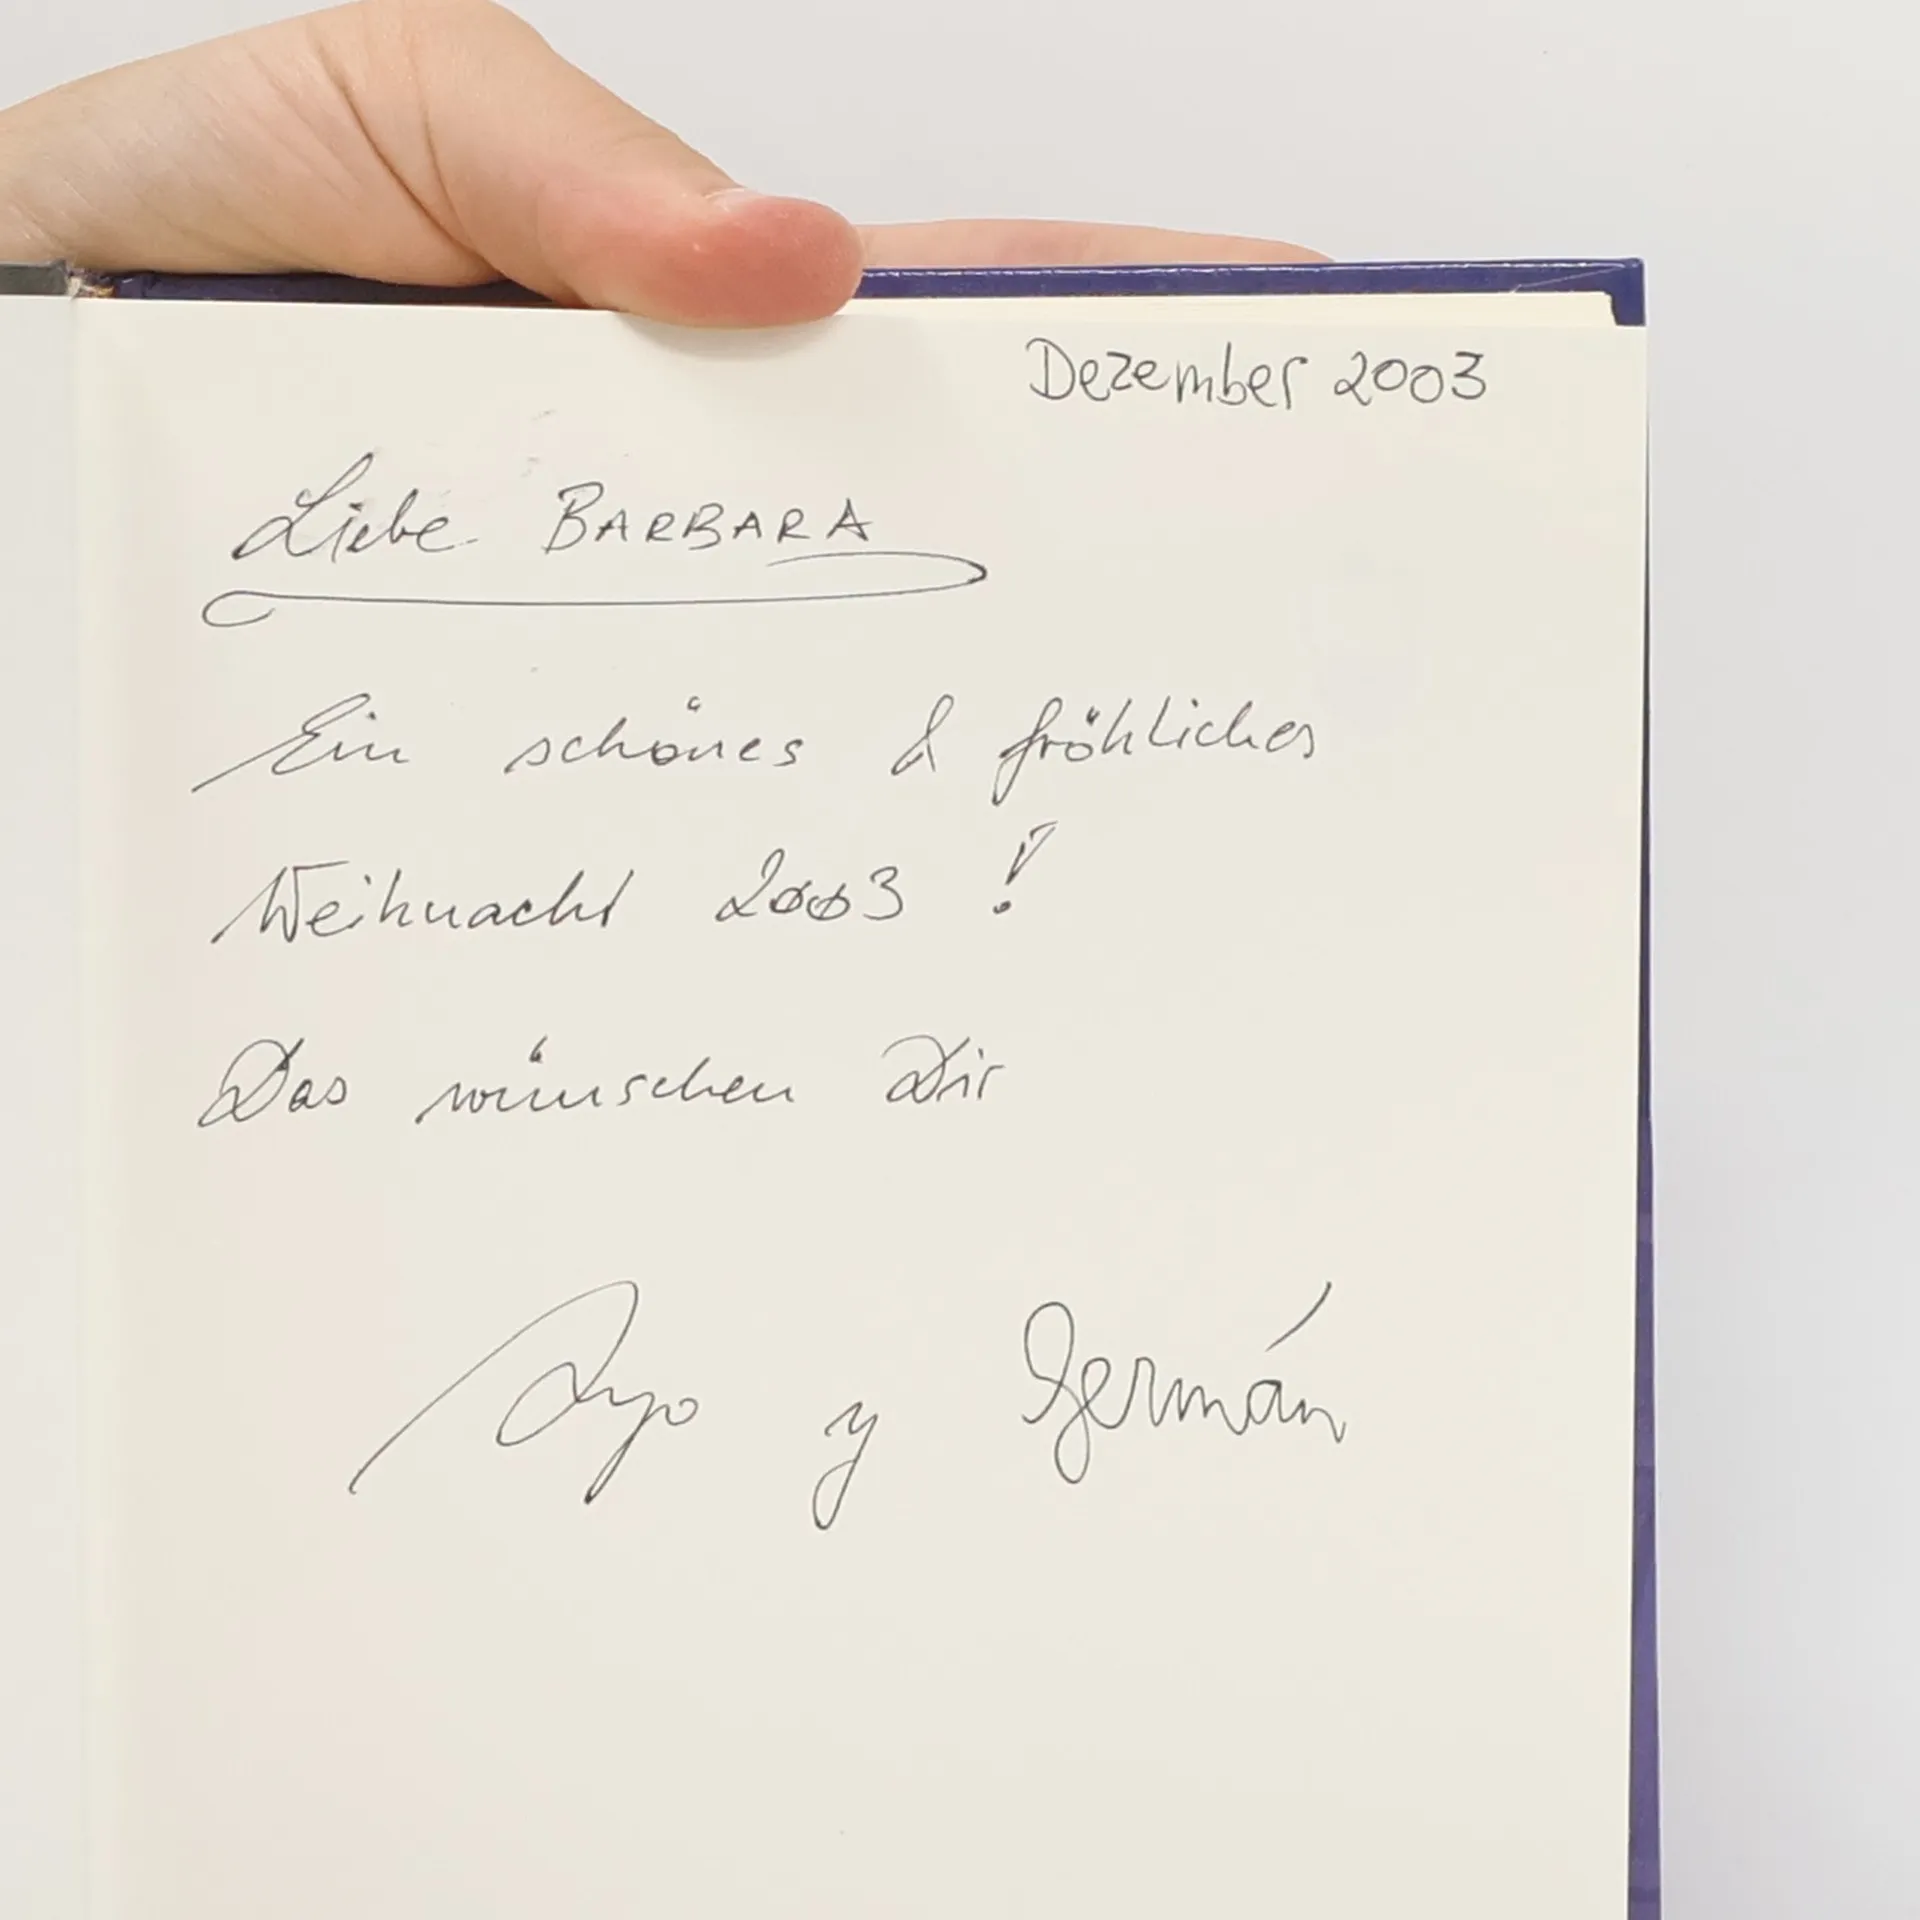 Dezember 2003
Liebe BARBARA
Ein schönes & fröhliches
Weihnacht 2003 !
Das wünschen Dir
y Germán